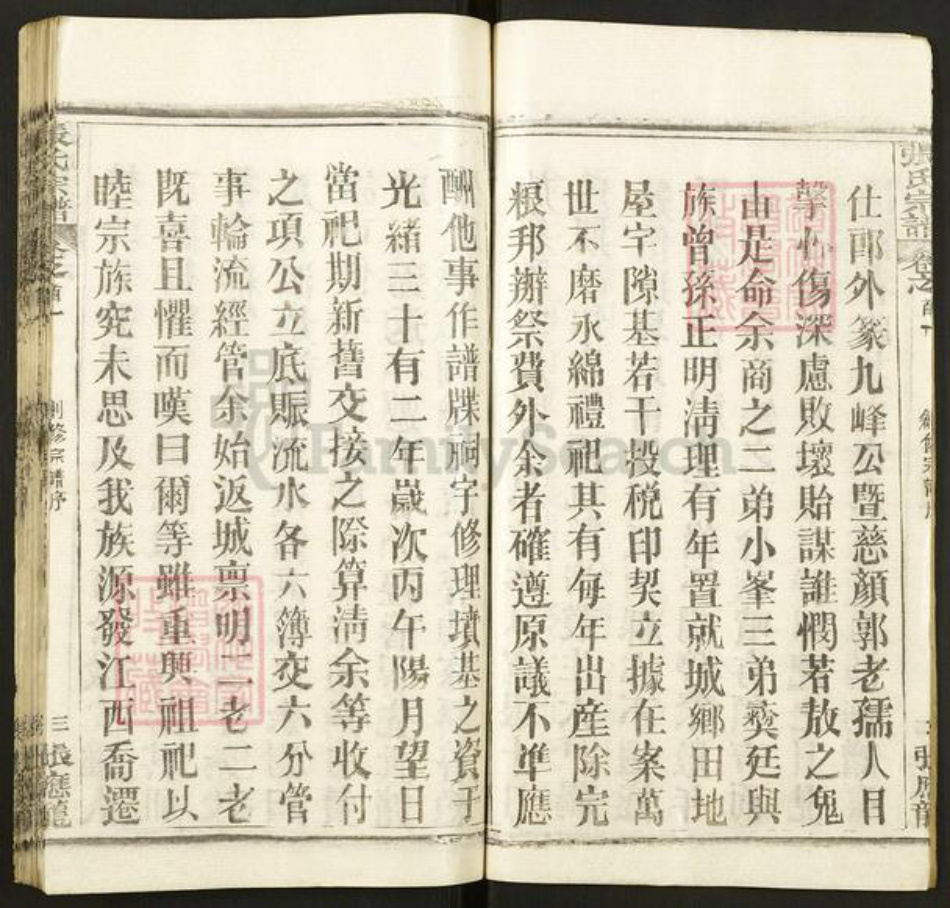 張氏宗譜
卷之首
仕郎外篆九峰公暨慈顏郭老孺人目
擊心傷深慮敗壞貽謀誰憫若敖之鬼
由是命余商之二弟小峯三弟廷與
族曾孫正明清理有年置就城鄉田地
屋宇隙基若干投稅印契立據在案萬
世不磨永綿禮祀其有每年出產除完
粮邦辦祭費外余者確遵原議不準應
張應龍
酬他事作譜牒祠宇修理墳基之資于
光緒三十有二年歲次丙午陽月望日
當祀期新舊交接之際算清余等收付
之項公立底賬流水各六簿交六分管
事輪流經管余始返城禀明二老二老
既喜且懼而嘆曰爾等雖重興祖祀以
睦宗族究未思及我族源發江西喬遷
張氏宗譜
卷之首一
創修宗譜序
三
張應龍
FamilySearch